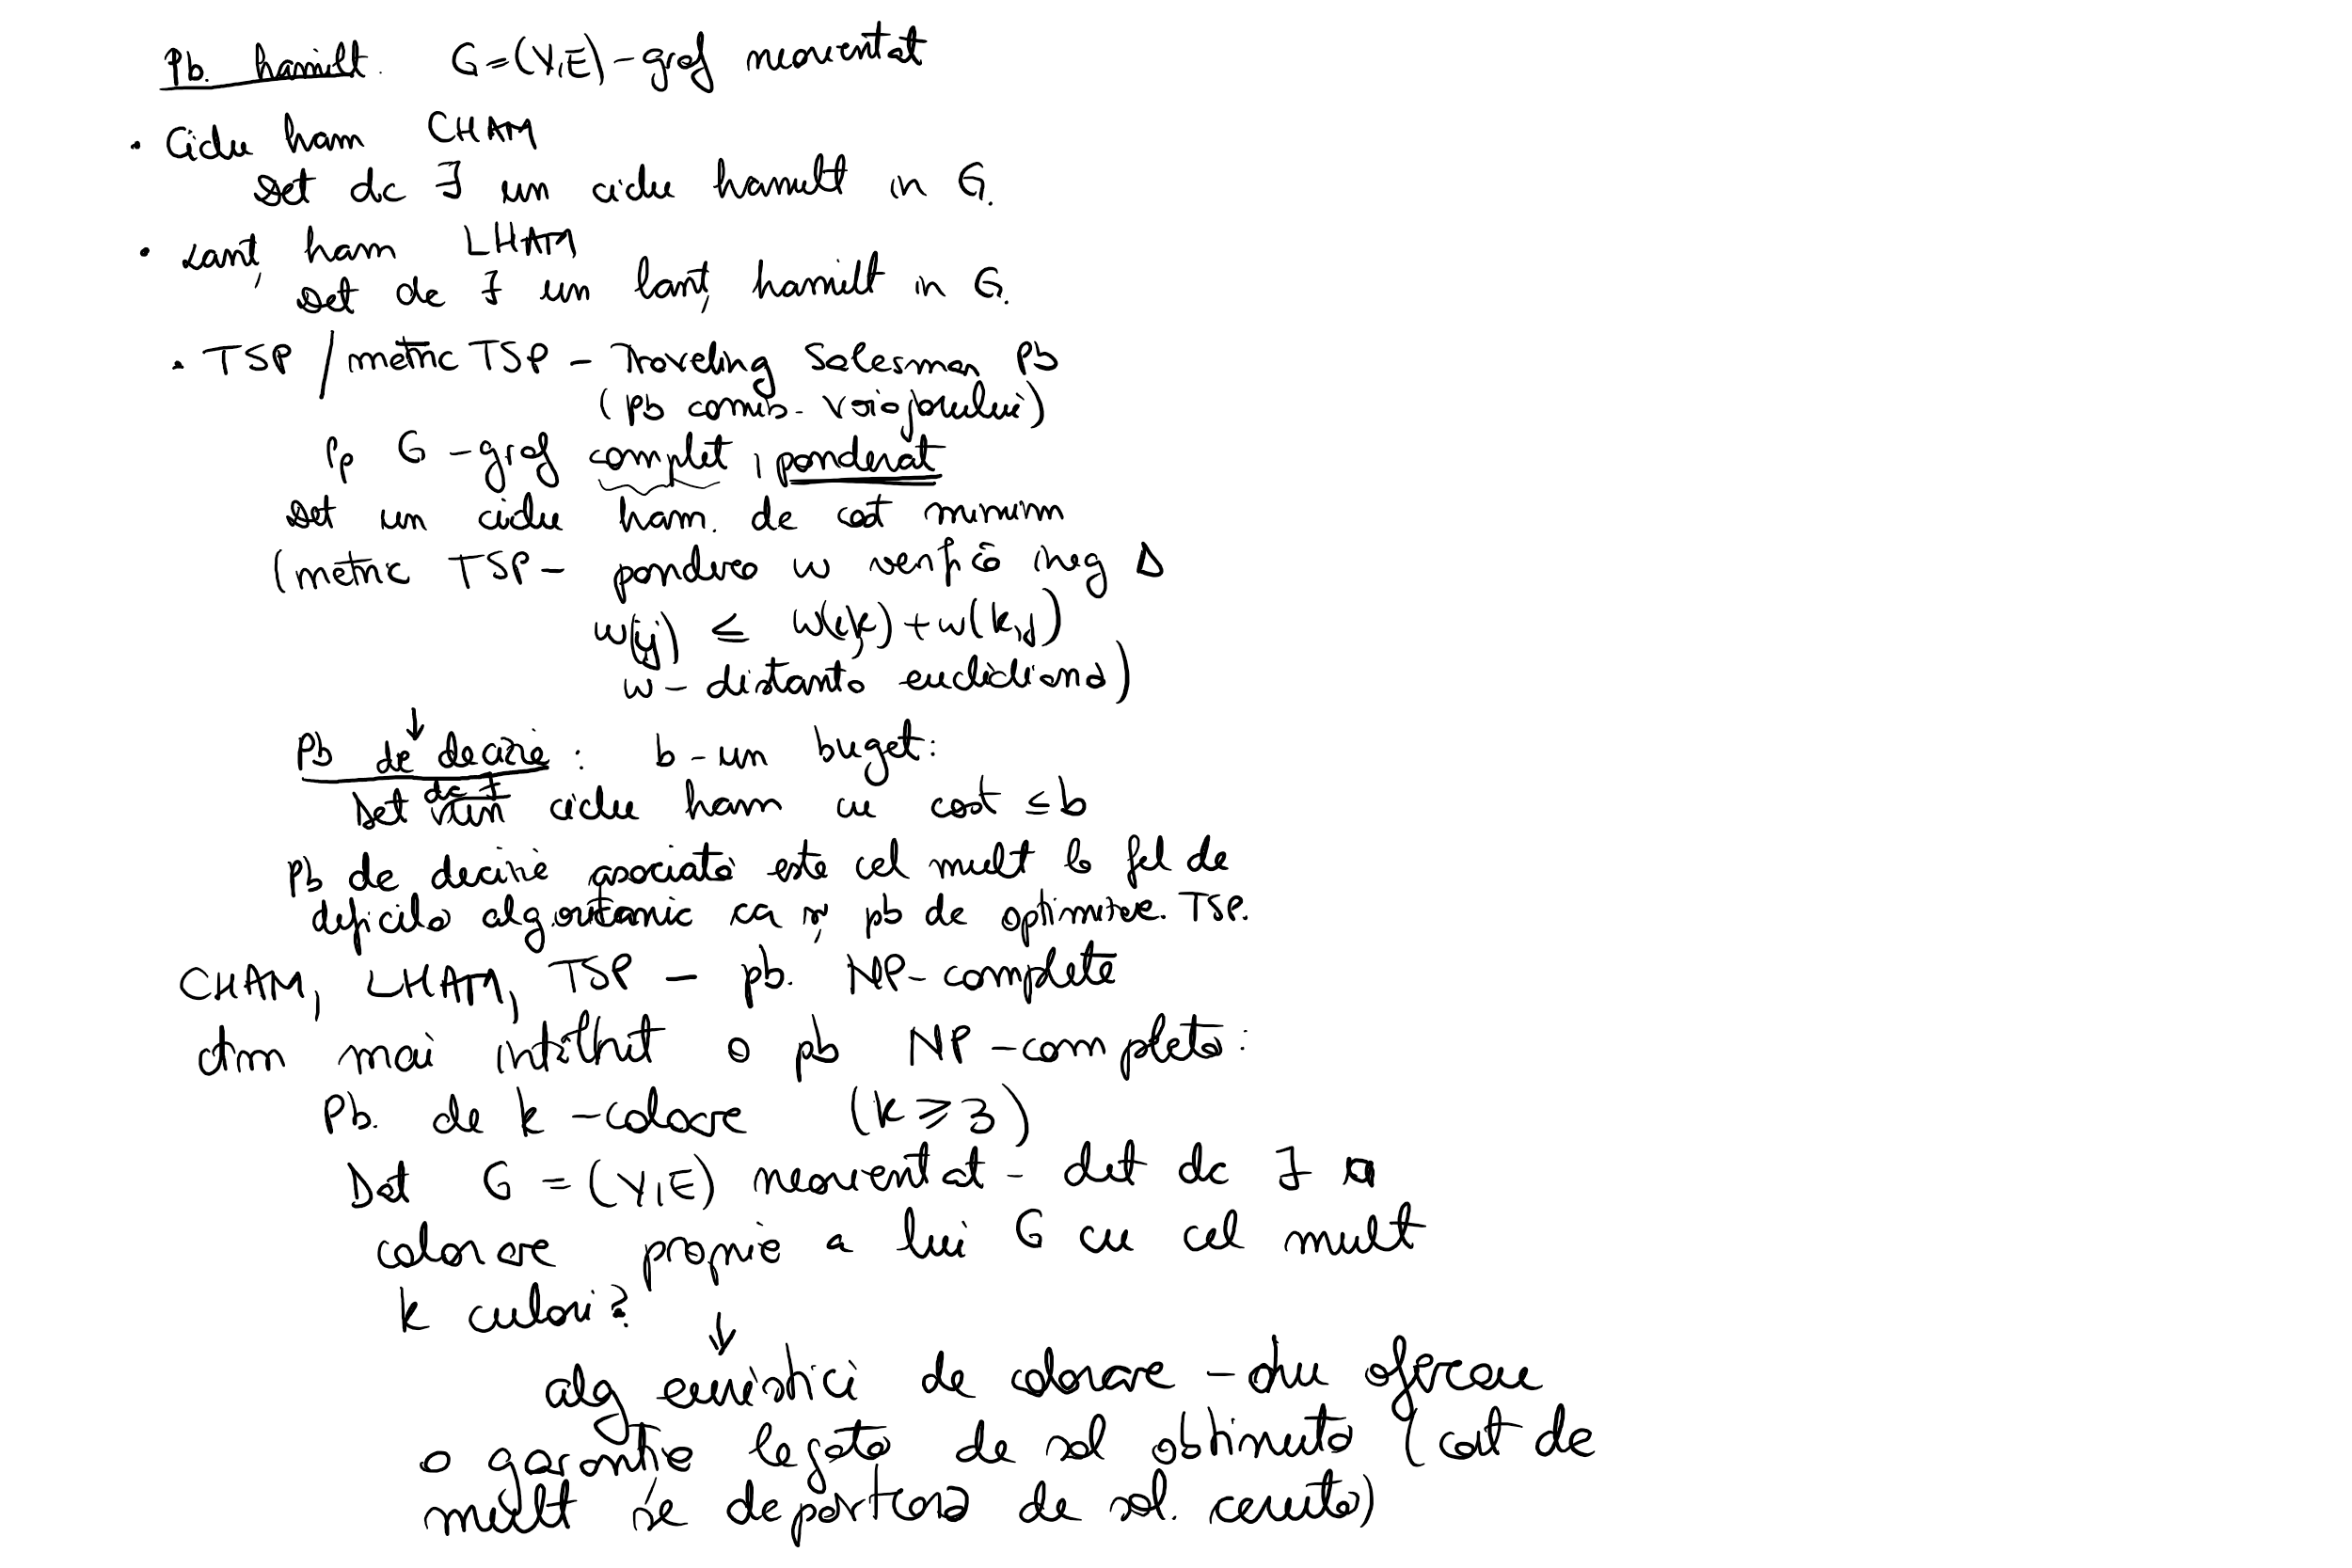 Pb. hamilt. G=(V,E) - graf neorientat
• Ciclu ham CHAM
Det dc ∃ un ciclu hamilt in G.
• Lanț ham LHAM
Det dc ∃ un lanț hamilt in G.
• TSP / metric TSP - Traveling Salesman Pb
(pb comis-voiajorului)
Pp G - graf complet, ponderat
Det un ciclu ham. de cost minim
(metric TSP - ponderea w verifică ineg Δ
w(ij) ≤ w(i,k) + w(k,j)
w - distanța euclidiană)
↓
Pb de decizie : b - un buget:
Det dc ∃ un ciclu ham cu cost ≤ b
Pb de decizie asociată este cel mult la fel de
dificilă algoritmic ca și pb de optimizare TSP.
CHAM, LHAM, TSP - pb. NP-complete
Am mai întâlnit o pb NP-completă:
Pb. de k-colorare (k ≥ 3)
Dat G = (V,E) neorientat - det dc ∃ o
colorare proprie a lui G cu cel mult
k culori?
↓
alg euristici de colorare - nu ofereau
o garanție legată de sol obținută (cât de
mult se depărtează de sol. cerută)